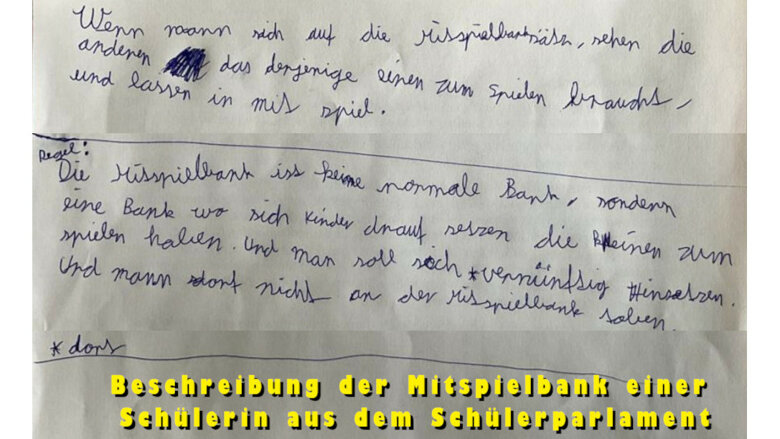 Wenn mann sich auf die Misspielbank sätz, sehen die
anderen das derjenige einen zum spielen braucht,
und lassen in mit spiel.
Regel:
Die Misspielbank ist keine normale Bank, sondern
eine Bank wo sich Kinder drauf setzen die keinen zum
spielen haben. Und man soll sich *vernünftig hinsetzen.
Und mann dorf nicht an der Misspielbank toben.
*dort
Beschreibung der Mitspielbank einer
Schülerin aus dem Schülerparlament